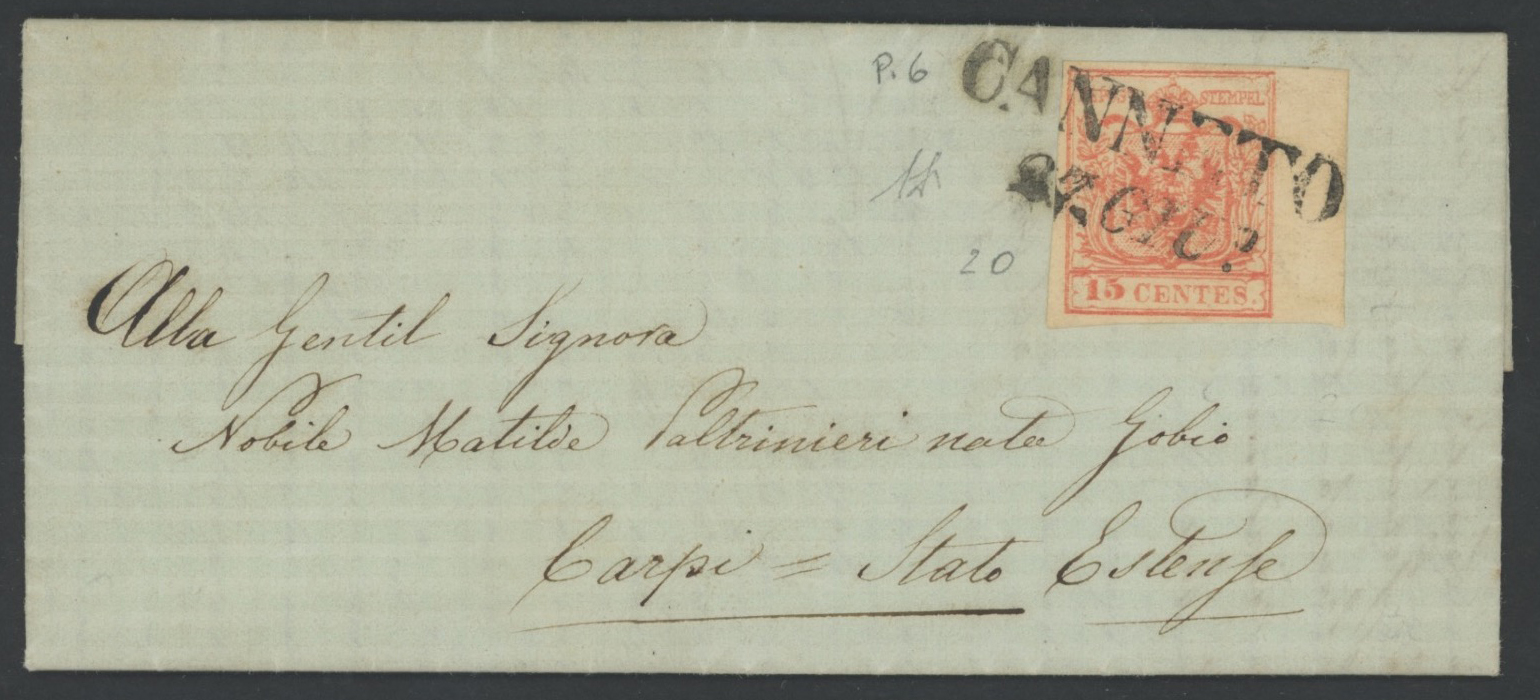 P. 6
CANNETO
27. GIU?
KKPOST-STEMPEL
20
15 CENTES.
Alla Gentil Signora
Nobile Matilde Paltrinieri nata Gobio
Carpi = Stato Estense